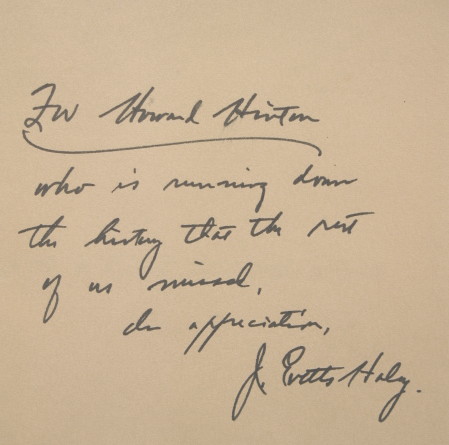 For Howard Hinton
who is running down
the history that the rest
of us missed.
In appreciation,
J. Evetts Haley.